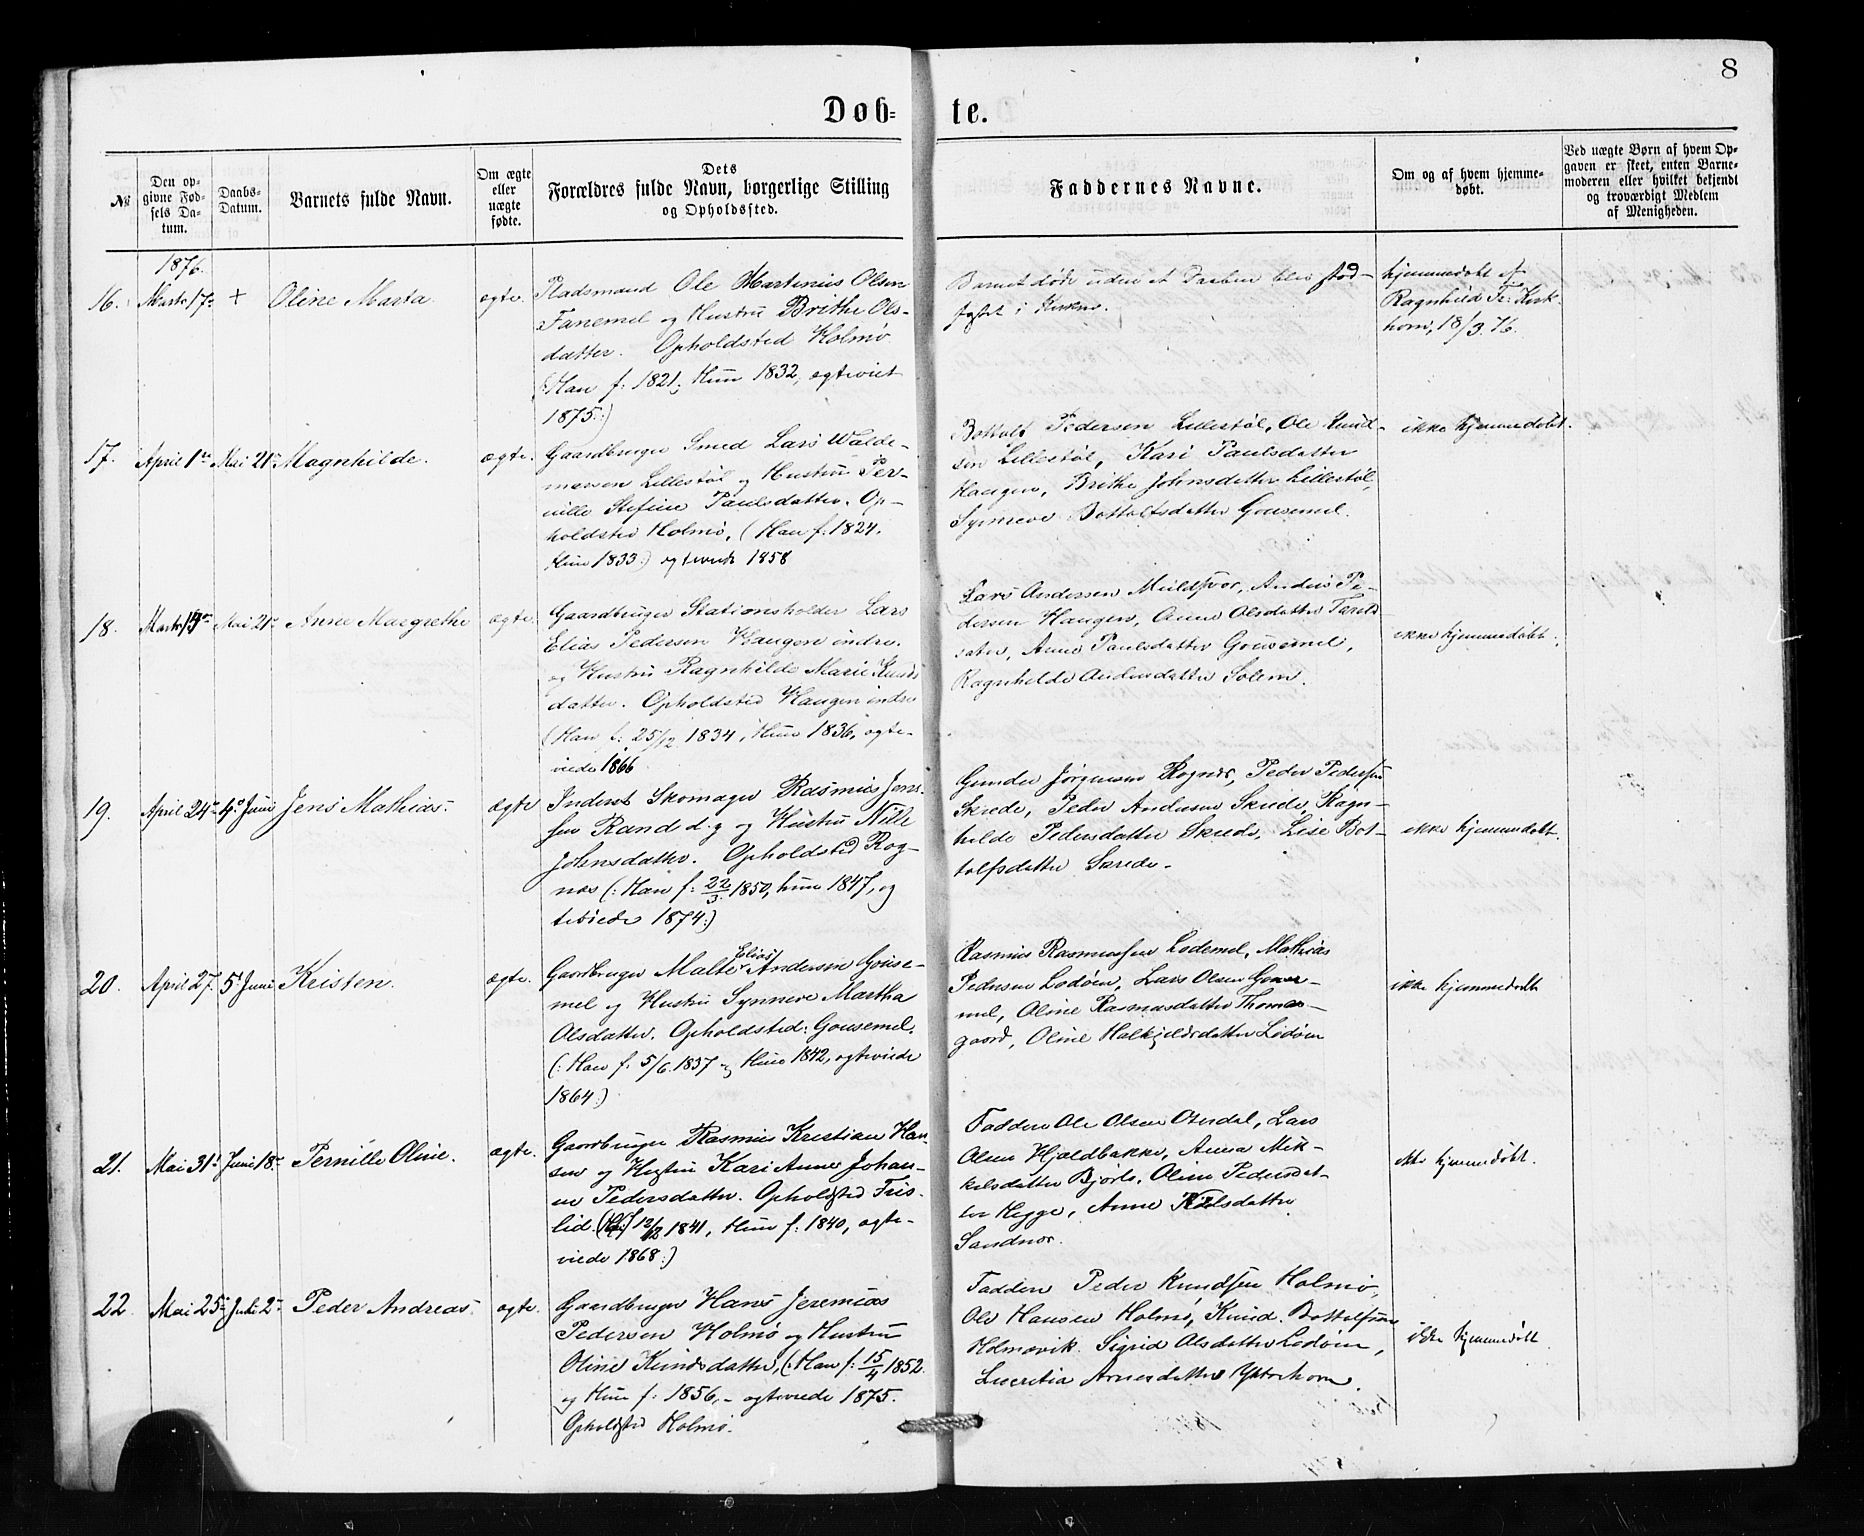 8
Døb= te.
№
Den op-
givne Fød-
sels Da-
tum.
Daabs-
Datum.
Barnets fulde Navn.
Om ægte
eller
uægte
fødte.
Dets
Forældres fulde Navn, borgerlige Stilling
og Opholdssted.
Faddernes Navne.
Om og af hvem hjemme-
døbt.
Ved uægte Børn af hvem Op-
gaven er skeet, enten Barne-
moderen eller hvilket bekjendt
og troværdigt Medlem
af Menigheden.
1876.
16. Marts 17de + Oline Marta ægte.
Ole Martinus Olsen
Fanemel og Hustru Brithe Ols-
datter. Opholdsted Holmø
(: Han f: 1821, Hun 1832, egteviet
1875:)
Barnet døde uden at Daaben blev stad-
fæstet i Kirken.
hjemmedøbt af
Ragnhild
horn, 18/3.76.
17. April 1ste Mai 21de Magnhilde. ægte.
Gaardbruger Smed Lars Walde-
marsen Lillestøl og Hustru Per-
nille Stefine Paulsdatter. Op-
holdsted Holmø, (Han f. 1824.
Hun 1833:) egteviede 1858
Bottolf Pedersen Lillestøl, Ole Knud-
sen Lillestøl, Kari Paulsdatter
Haugen, Brithe Johnsdatter Lillestøl,
Synneve Bottolfsdatter Gousemel.
ikke hjemmedøbt.
18. Marts Mai 21de Anne Margrethe ægte.
Gaardbruger Stationsholder Lars
Elias Pedersen Haugen indre.
og Hustru Ragnhilde Marie Knuds
datter. Opholdsted Haugen indre
(Han f: 25/12 1834, Hun 1836, egte-
viede 1866
Lars Andersen Muldsvor, Anders Pe-
dersen Haugen, Anne Olsdatter
Anne Paulsdatter Gousemel,
Ragnhilde Andersdatter Solem.
ikke hjemmedøbt.
19. April 24de 4de Juni Jens Mathias. ægte
Inderst Skomager Rasmus Jens-
sen Rand d.y og Hustru Nille
Johnsdatter. Opholdsted Rog-
nes (: Han f: 22/3 1850, hun 1847, eg
teviede 1874:)
Gunder Jørgensen Rognes, Peder Pedersen
Skrede, Peder Andersen Skrede, Ragn-
hilde Pedersdatter Skrede, Lise Bot-
tolfsdatter Skrede.
ikke hjemmedøbt.
20. April 27. 5te Juni Kristen. ægte.
Gaardbruger Malte Elias Andersen Gouse-
mel og Hustru Synneve Martha
Olsdatter. Opholdsted: Gousemel.
(: Han f. 5/6.1837 og Hun 1842, egteviede
1864:)
Rasmus Rasmussen Lodemel, Mathias
Pedersen Lødøen, Lars Olsen
mel, Oline Rasmusdatter Thomas-
gaard, Oline Halkjeldsdatter Lødøen
ikke hjemmedøbt
21. Mai 31te Juni 18de Pernille Oline. ægte.
Gaardbruger Rasmus Kristian Han-
sen og Hustru Kari Anne Johan-
ne Pedersdatter. Opholdsted Fris-
lid. 12/2 1841, Hun f: 1840, egte-
viede 1868:)
Faddere Ole Olsen Otredal, Lars
Olsen Hjeldbakke, Anna Mik-
kelsdatter Bjørlo, Oline Pedersdat-
ter Hegge, Anne
Sandnes.
ikke hjemmedøbt.
22. Mai 25de Juli 2den Peder Andreas. ægte.
Gaardbruger Hans Jeremias
Pedersen Holmø og Hustru
Oline Knudsdatter, (: Han f: 15/4 1852
og Hun f: 1856, - egteviede 1875.
Opholdsted Holmø.
Faddere Peder Knudsen Holmø,
Ole Hansen Holmø, Knud Bottolfsen
Holmøvik. Sigrid Olsdatter Lødøen,
Lucretia Arnesdatter Ytrehorn.
ikke hjemmedøbt.